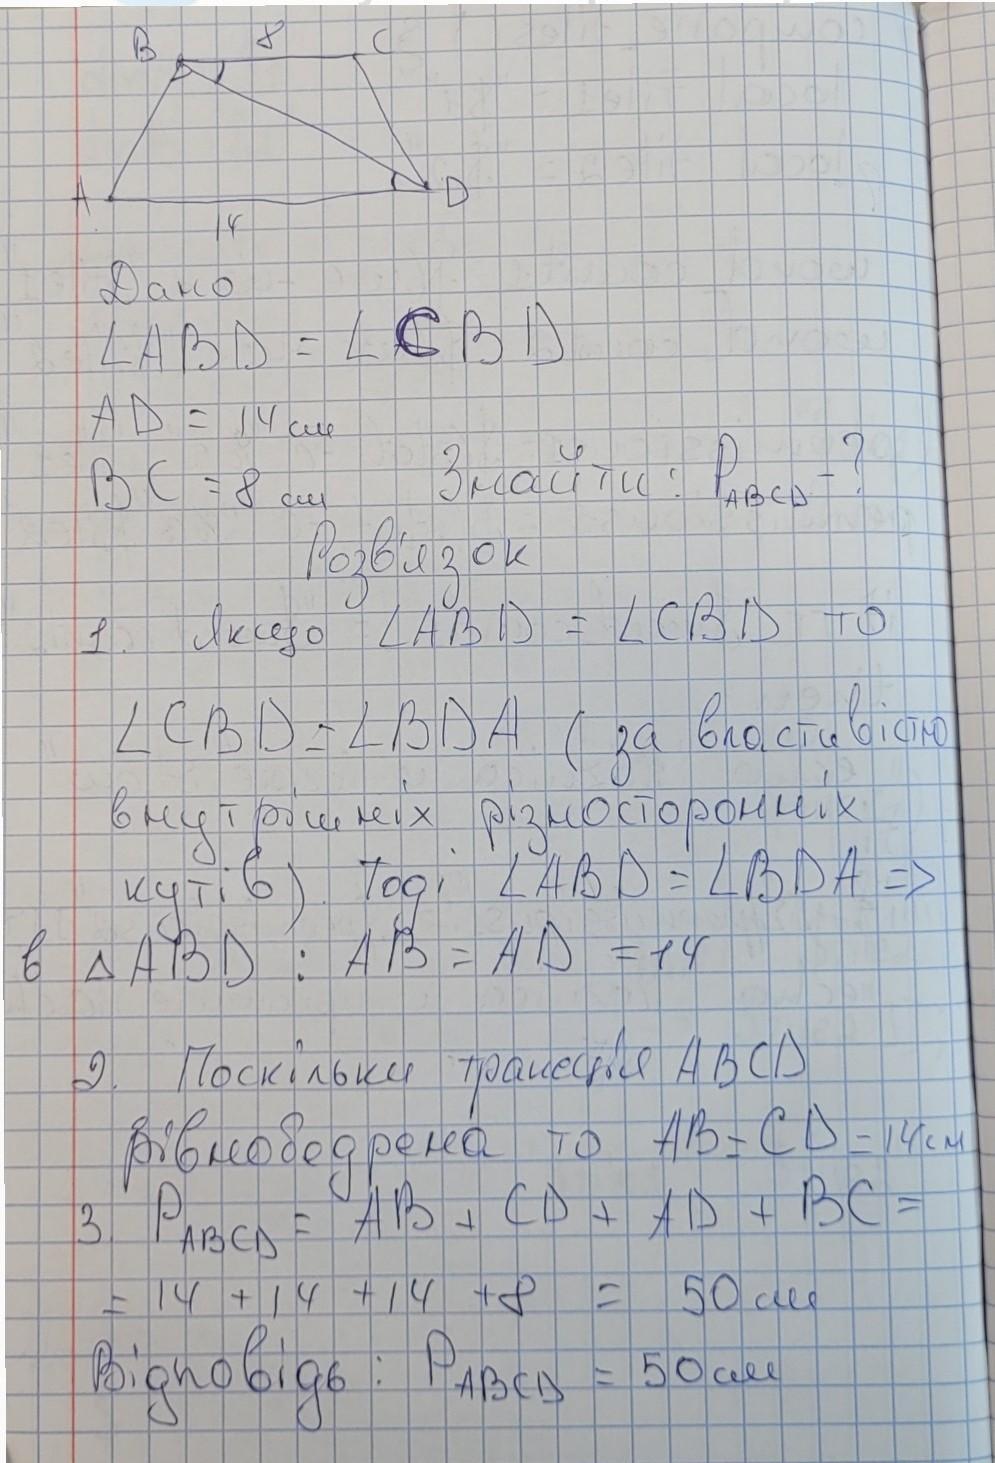 B 8 C
A D
14
Дано
∠ABD = ∠CBD
AD = 14 см
BC = 8 см Знайти: P_ABCD - ?
Розв'язок
1. Якщо ∠ABD = ∠CBD то
∠CBD = ∠BDA (за властивістю
внутрішніх різносторонніх
кутів). Тоді ∠ABD = ∠BDA =>
в △ABD : AB = AD = 14
2. Поскільки трапеція ABCD
рівнобедрена то AB = CD = 14 см
3. P_ABCD = AB + CD + AD + BC =
= 14 + 14 + 14 + 8 = 50 см
Відповідь : P_ABCD = 50 см